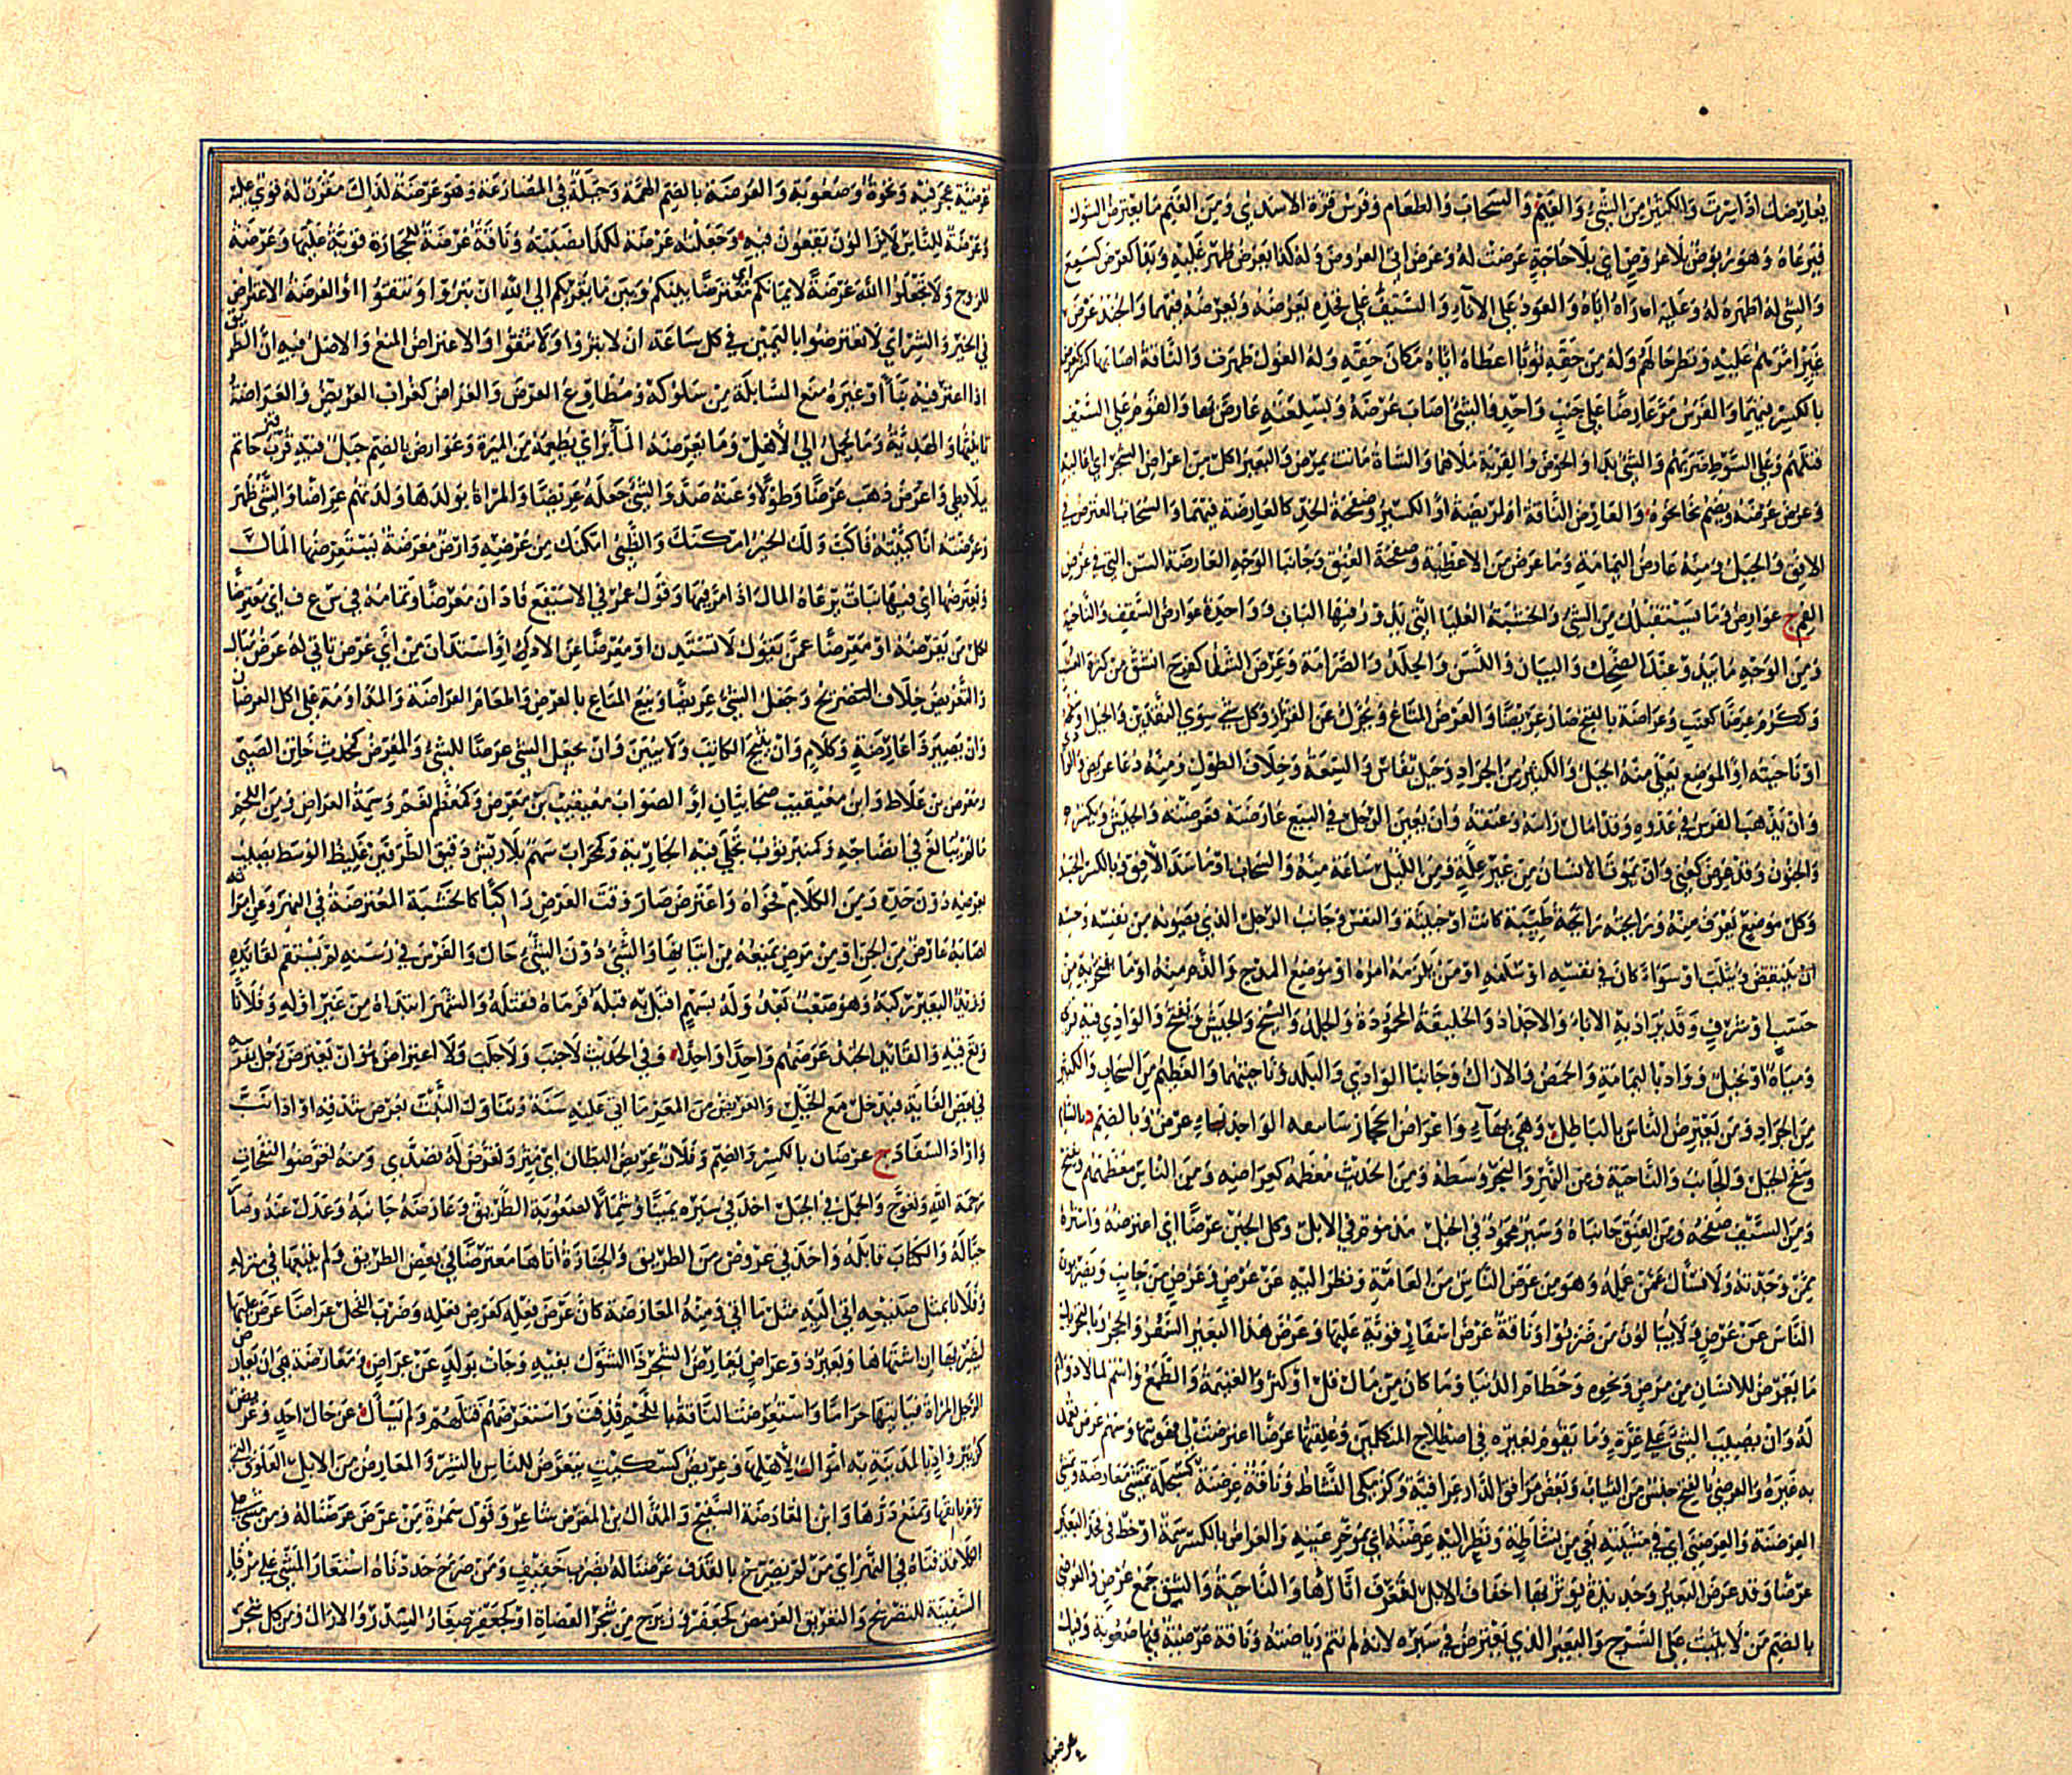 يعارضك اذا سرت والكثير من الشئ والغيم والسحاب والطعام وفرس قرة الاسدي ومن الغنم ما يعترض الشوك
فيرعاه وهو يربوض بلا عروض اي بلا حاجة عرضت له وعرض اتي العروض وله كذا يعرض ظهر عليه وبدا كعرض كسمع
والشئ له اظهره له وعليه اراه اياه والعود على الاناء والسيف على فخذه يعرضه ويعرضه فيهما والجند عرض
عين امرهم عليه ونظر حالهم وله من حقه ثوبا اعطاه اياه مكان حقه وله الغول ظهرت والناقة اصابها كسر كعرض
بالكسر فيهما والفرس مر عارضا على جنب واحد والشئ اصاب عرضه وبسلعته عارض بها والقوم على السيف
قتلهم وعلى السوط ضربهم والشئ بدا والحوض والقربة ملاهما والشاة ماتت بمرض والبعير اكل من اعراض الشجر اي اعاليه
وعرض عرضه ويضم نحا نحوه والعارض الناقة المريضة او الكسير وصفحة الخد كالعارضة فيهما والسحاب المعترض في
الافق والجبل ومنه عارض اليمامة وما عرض من الاعطية وصفحة العنق وجانبا الوجه والعارضة السن التي في عرض
الفم ج عوارض وما يستقبلك من الشئ والخشبة العليا التي يدور فيها الباب وواحدة عوارض السقف والناحية
ومن الوجه ما يبدو عند الضحك والبيان واللسن والجلد والصرامة وعرض الشاء كفرح انشق من كثرة العشب
وككرم عرضا كعنب وعراضة بالفتح صار عريضا والعرض المتاع ويحرك عن القزاز وكل شئ سوى النقدين والجبل او سفحه
او ناحيته او الموضع يعلى منه الجبل والكثير من الجراد وجبل بفاس والسعة وخلاف الطول ومنه دعاء عريض والوادي
وان يذهب الفرس في عدوه وقد امال راسه وعنقه وان يغبن الرجل في البيع عارضته فعرضته والجيش ويكسر
والجنون وقد عرض كعني وان يموت الانسان من غير علة ومن الليل ساعة منه والسحاب او ما سد الافق وبالكسر الجسد
وكل موضع يعرق منه ورائحته رائحة طيبة كانت او خبيثة والنفس وجانب الرجل الذي يصونه من نفسه وحسبه
ان ينتقص ويثلب او سواء كان في نفسه او سلفه او من يلزمه امره او موضع المدح والذم منه او ما يفتخر به من
حسب او شرف وقد يراد به الاباء والاجداد والخليقة المحمودة والجلد والسح والجيش ويفتح والوادي فيه قرى
ومياه او نخل وواد باليمامة والحمض والاراك وجانبا الوادي والبلد وناحيتهما والعظيم من السحاب والكثير
من الجراد ومن يعترض الناس بالباطل وهي بهاء واعراض الحجاز رساتيقه الواحد عرض وبالضم د بالشام
وسفح الجبل والجانب والناحية ومن النهر والبحر وسطه ومن الحديث معظمه كعراضه ومن الناس معظمهم ويفتح
ومن السيف صفحه ومن العنق جانباه وسير محمود في الخيل مذموم في الابل وكل الجبن عرضا اي اعترضه واشتره
ممن وجدته ولا تسال عمن عمله وهو من عرض الناس من العامة ونظر اليه عن عرض وعرض من جانب ويضربون
الناس عن عرض ولا يبالون من ضربوا وناقة عرض اسفار قوية عليها وعرض هذا البعير السفر والحجر وبالتحريك
ما يعرض للانسان من مرض ونحوه وحطام الدنيا وما كان من مال قل او كثر والغنيمة والطمع واسم لما لا دوام
له وان يصيب الشئ على غرة وما يقوم بغيره في اصطلاح المتكلمين وعلقتها عرضا اعترضت لي فهويتها وسهم عرض تعمد
به غيره والعرضي بالفتح جنس من الثياب وبعض مرافق الدار عراقية وكزمكى النشاط وناقة عرضنة كسبحلة تمشي معارضة وتمشي
العرضنة والعرضنى اي في مشيته بغي من نشاطه ونظر اليه عرضنة اي بمؤخر عينه والعراض بالكسر سمة او خط في فخذ البعير
عرضا وقد عرض البعير وحديدة يؤثر بها اخفاف الابل لتعرف اثارها والناحية والشق جمع عرض والعرضي
بالضم من لا يثبت على السرج والبعير الذي يعترض في سيره لانه لم تتم رياضته وناقة عرضية فيها صعوبة وفيك
عرضية عجرفية ونخوة وصعوبة والعرضة بالضم الهمة وحيلة في المصارعة وهو عرضة لذاك مقرن له قوي عليه
وعرضة للناس لا يزالون يقعون فيه وجعلته عرضة لكذا نصبته له وناقة عرضة للحجارة قوية عليها وعرضة
للزوج ولا تجعلوا الله عرضة لايمانكم اي معترضا بينكم وبين ما يقربكم الى الله ان تبروا وتتقوا او العرضة الاعتراض
في الخير والشر اي لا تعترضوا باليمين في كل ساعة ان لا تبروا ولا تتقوا والاعتراض المنع والاصل فيه ان الطريق
اذا اعترض فيه بناء او غيره منع السابلة من سلوكه ومطاوع العرض والعراض كغراب العريض والعراضة
تانيثها والهدية وما يحمل الى الاهل وما يعرضه المائر اي يطعمه من الميرة وعوارض بالضم جبل فيه قبر حاتم
ببلاد طي واعرض ذهب عرضا وطولا وعنه صد والشئ جعله عريضا والمراة بولدها ولدتهم عراضا والشئ ظهر
وعرضته انا كببته فاكب ولك الخير امكنك والظبي امكنك من عرضه وارض معرضة يستعرضها المال
ويعترضها اي فيها نبات يرعاه المال اذا مر فيها وقول عمر في الاسيفع فادان معرضا وتمامه في س ع ف اي معترضا
لكل من يقرضه او معرضا عمن يقول لا تستدن او معرضا عن الاداء او استدان من اي عرض تاتى له غير مبال
والتعريض خلاف التصريح وجعل الشئ عريضا وبيع المتاع بالعرض واطعام العراضة والمداومة على اكل العرضان
وان يصير ذا عارضة وكلام وان يثبج الكاتب ولا يبين وان يجعل الشئ عرضا للشئ والمعرض كمحدث خاتن الصبي
ومعرض بن علاط وابن معيقيب صحابيان او الصواب معيقيب بن معرض وكمعظم نعم وسمه العراض ومن اللحم
ما لم يبالغ في انضاجه وكمنبر ثوب تجلى فيه الجارية وكمحراب سهم بلا ريش دقيق الطرفين غليظ الوسط يصيب
بعرضه دون حده ومن الكلام فحواه واعترض صار وقت العرض راكبا كالخشبة المعترضة في النهر وعن امراته
اصابه عارض من الجن او من مرض يمنعه من اتيانها والشئ دون الشئ حال والفرس في رسنه لم يستقم لقائده
وزيد البعير ركبه وهو صعب بعد وله بسهم اقبل به قبله فرماه فقتله والشهر ابتداه من غير اوله وفلانا
وقع فيه والقائد الجند عرضهم واحدا واحدا وفي الحديث لا جنب ولا جلب ولا اعتراض هو ان يعترض رجل بفرسه
في بعض الغاية فيدخل مع الخيل والعريض من المعز ما اتى عليه سنة وتناول النبت بعرض شدقه او اذا نب
واراد السفاد ج عرضان بالكسر والضم وفلان عريض البطان اي مثر وتعرض له تصدى ومنه تعرضوا لنفحات
رحمة الله وتعوج والجمل في الجبل اخذ في سيره يمينا وشمالا لصعوبة الطريق وعارضه جانبه وعدل عنه وسار
حياله والكتاب قابله واخذ في عروض من الطريق والجنازة اتاها معترضا في بعض الطريق ولم يتبعها من منزله
وفلانا بمثل صنيعه اتى اليه مثل ما اتى ومنه المعارضة كان عرض فعله كعرض فعله وضرب الفحل عراضا عرض عليها
ليضربها ان اشتهاها وبعير ذو عراض يعارض الشجر ذا الشوك بفيه وجاءت بولد عن عراض ومعارضة هي ان يعارض
الرجل المراة فياتيها حراما واستعرضت الناقة باللحم قذفت واستعرضهم قتلهم ولم يسال عن حال احد وعريض
كزبير واد بالمدينة به اموال لاهلها وعريض كسكيت يتعرض للناس بالشر والمعارض من الابل العلوق التي
ترام بانفها وتمنع درها وابن المعارضة السفيح والمذال بن المعترض شاعر وقول سمرة من عرض عرضنا له ومن مشى على
الكلاء قذفناه في النهر اي من لم يصرح بالقذف عرضنا له بضرب خفيف ومن صرح حددناه استعار المشي على مرفا
السفينة للتصريح والتعريض العرمض كجعفر وزبرج من شجر العضاه او كجعفر صغار السدر والاراك ومن كل شجر
عرضية